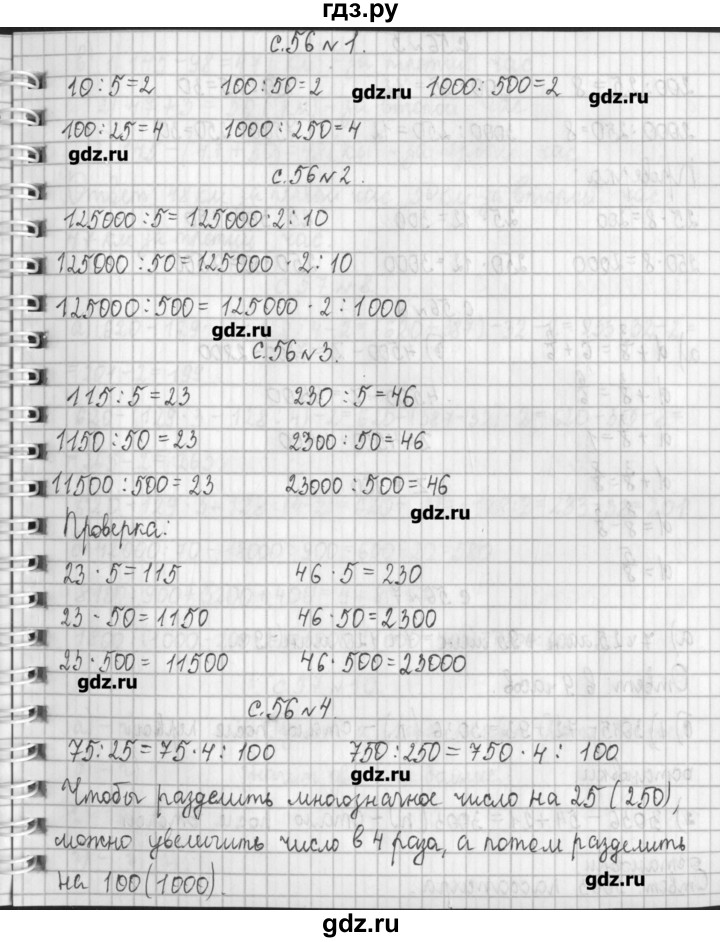 гдз.ру
с.56 №1.
10:5=2 100:50=2 gdz.ru 1000:500=2 gdz.ru
100:25=4 1000:250=4
gdz.ru
с.56 №2.
125000:5=125000·2:10
125000:50=125000·2:10
125000:500=125000·2:1000
gdz.ru
с.56 №3.
115:5=23 230:5=46
1150:50=23 2300:50=46
11500:500=23 23000:500=46
gdz.ru
Проверка:
23·5=115 46·5=230
23·50=1150 46·50=2300
23·500=11500 46·500=23000
gdz.ru
с.56 №4.
75:25=75·4:100 750:250=750·4:100
gdz.ru
Чтобы разделить многозначное число на 25 (250),
можно увеличить число в 4 раза, а потом разделить
на 100 (1000). gdz.ru
gdz.ru